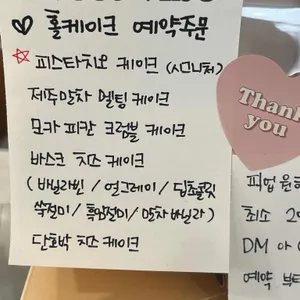 ♡ 홀케이크 예약주문
☆ 피스타치오 케이크 (시그니처)
제주말차 멜팅 케이크
모카 피칸 크럼블 케이크
바스크 치즈 케이크
(바닐라빈 / 얼그레이 / 딥초콜릿
쑥절미 / 흑임절미 / 말차바닐라)
단호박 치즈 케이크
Thank
you
픽업
최소 2
DM
예약 부탁